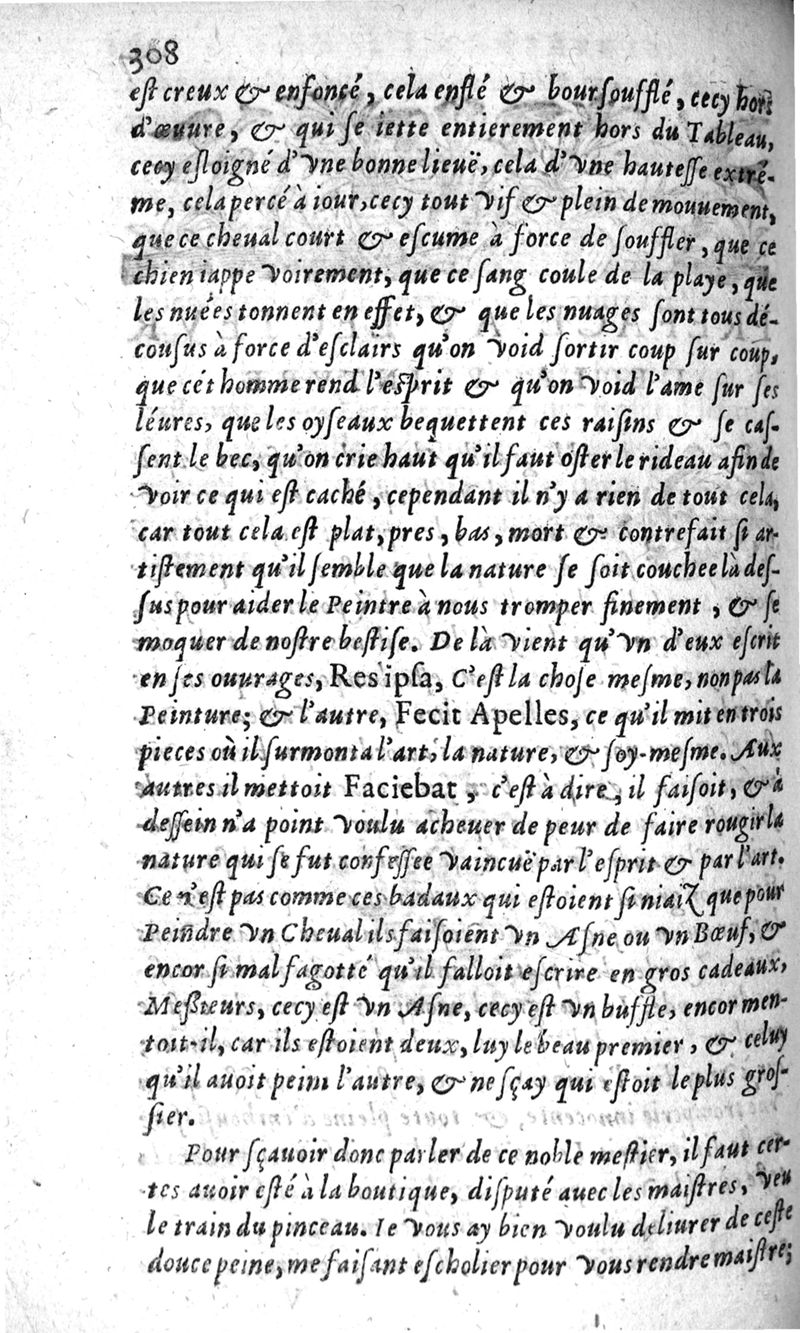 308
eſt creux & enfoncé, cela enflé & bourſoufflé, cecy hors
d'œuure, & qui ſe iette entierement hors du Tableau,
cecy eſloigné d'vne bonne lieuë, cela d'vne hauteſſe extrê-
me, cela percé à iour, cecy tout vif & plein de mouuement,
que ce cheual court & eſcume à force de ſouffler, que ce
chien iappe voirement, que ce ſang coule de la playe, que
les nuées tonnent en effet, & que les nuages ſont tous dé-
couſus à force d'eſclairs qu'on void ſortir coup ſur coup,
que cét homme rend l'eſprit & qu'on void l'ame ſur ſes
léures, que les oyſeaux bequettent ces raiſins & ſe caſ-
ſent le bec, qu'on crie haut qu'il faut oſter le rideau afin de
voir ce qui eſt caché, cependant il n'y a rien de tout cela,
car tout cela eſt plat, pres, bas, mort & contrefait ſi ar-
tiſtement qu'il ſemble que la nature ſe ſoit couchee là deſ-
ſus pour aider le Peintre à nous tromper finement, & ſe
moquer de noſtre beſtiſe. De là vient qu'vn d'eux eſcrit
en ſes ouurages, Res ipſa, C'eſt la choſe meſme, non pas la
Peinture; & l'autre, Fecit Apelles, ce qu'il mit en trois
pieces où il ſurmonta l'art, la nature, & ſoy-meſme. Aux
autres il mettoit Faciebat, c'eſt à dire, il faiſoit, & à
deſſein n'a point voulu acheuer de peur de faire rougir la
nature qui ſe fut confeſſee vaincuë par l'eſprit & par l'art.
Ce n'eſt pas comme ces badaux qui eſtoient ſi niaiz que pour
Peindre vn Cheual ils faiſoient vn Aſne ou vn Bœuf, &
encor ſi mal fagotté qu'il falloit eſcrire en gros cadeaux,
Meſſieurs, cecy eſt vn Aſne, cecy eſt vn buffle, encor men-
toit-il, car ils eſtoient deux, luy le beau premier, & celuy
qu'il auoit peint l'autre, & ne ſçay qui eſtoit le plus groſ-
ſier.
Pour ſçauoir donc parler de ce noble meſtier, il faut cer-
tes auoir eſté à la boutique, diſputé auec les maiſtres, veu
le train du pinceau. Ie vous ay bien voulu deliurer de ceſte
douce peine, me faiſant eſcholier pour vous rendre maiſtre;